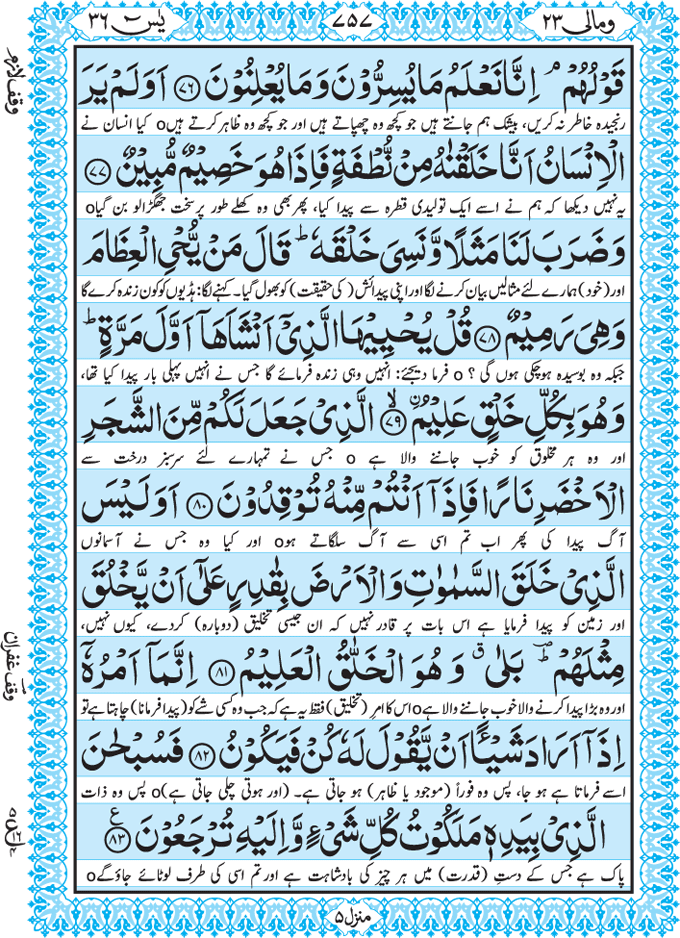 یٰسٓ ٣٦
٧٥٧
ومالی ٢٣
وقف لازم
قَوْلُهُمْ ۘ اِنَّا نَعْلَمُ مَا يُسِرُّوْنَ وَمَا يُعْلِنُوْنَ ﴿٧٦﴾ اَوَلَمْ يَرَ
رنجیدہ خاطر نہ کریں، بیشک ہم جانتے ہیں جو کچھ وہ چھپاتے ہیں اور جو کچھ وہ ظاہر کرتے ہیں o کیا انسان نے
الْاِنْسَانُ اَنَّا خَلَقْنٰهُ مِنْ نُّطْفَةٍ فَاِذَا هُوَ خَصِيْمٌ مُّبِيْنٌ ﴿٧٧﴾
یہ نہیں دیکھا کہ ہم نے اسے ایک تولیدی قطرہ سے پیدا کیا، پھر بھی وہ کھلے طور پر سخت جھگڑالو بن گیا o
وَضَرَبَ لَنَا مَثَلًا وَّنَسِىَ خَلْقَهٗ ؕ قَالَ مَنْ يُّحْىِ الْعِظَامَ
اور (خود) ہمارے لئے مثالیں بیان کرنے لگا اور اپنی پیدائش (کی حقیقت) کو بھول گیا۔ کہنے لگا: ہڈیوں کو کون زندہ کرے گا
وَهِىَ رَمِيْمٌ ﴿٧٨﴾ قُلْ يُحْيِيْهَا الَّذِىْۤ اَنْشَاَهَاۤ اَوَّلَ مَرَّةٍ ؕ
جبکہ وہ بوسیدہ ہوچکی ہوں گی؟ o فرما دیجئے: انہیں وہی زندہ فرمائے گا جس نے انہیں پہلی بار پیدا کیا تھا،
وَهُوَ بِكُلِّ خَلْقٍ عَلِيْمُۨ ۙ﴿٧٩﴾ الَّذِىْ جَعَلَ لَكُمْ مِّنَ الشَّجَرِ
اور وہ ہر مخلوق کو خوب جاننے والا ہے o جس نے تمہارے لئے سرسبز درخت سے
الْاَخْضَرِ نَارًا فَاِذَاۤ اَنْتُمْ مِّنْهُ تُوْقِدُوْنَ ﴿٨٠﴾ اَوَلَيْسَ
آگ پیدا کی پھر اب تم اسی سے آگ سلگاتے ہو o اور کیا وہ جس نے آسمانوں
الَّذِىْ خَلَقَ السَّمٰوٰتِ وَالْاَرْضَ بِقٰدِرٍ عَلٰۤى اَنْ يَّخْلُقَ
اور زمین کو پیدا فرمایا ہے اس بات پر قادر نہیں کہ ان جیسی تخلیق (دوبارہ) کردے، کیوں نہیں،
مِثْلَهُمْ ؕ بَلٰى ۚ وَهُوَ الْخَلّٰقُ الْعَلِيْمُ ﴿٨١﴾ اِنَّمَاۤ اَمْرُهٗۤ
وقف غفران
اور وہ بڑا پیدا کرنے والا خوب جاننے والا ہے o اس کا امرِ (تخلیق) فقط یہ ہے کہ جب وہ کسی شے کو (پیدا فرمانا) چاہتا ہے تو
اِذَاۤ اَرَادَ شَيْــًٔا اَنْ يَّقُوْلَ لَهٗ كُنْ فَيَكُوْنُ ﴿٨٢﴾ فَسُبْحٰنَ
اسے فرماتا ہے ہو جا، پس وہ فوراً (موجود یا ظاہر) ہو جاتی ہے۔ (اور ہوتی چلی جاتی ہے) o پس وہ ذات
الَّذِىْ بِيَدِهٖ مَلَكُوْتُ كُلِّ شَىْءٍ وَّاِلَيْهِ تُرْجَعُوْنَ ﴿٨٣﴾ ع
پاک ہے جس کے دستِ (قدرت) میں ہر چیز کی بادشاہت ہے اور تم اسی کی طرف لوٹائے جاؤ گے o
منزل ٥